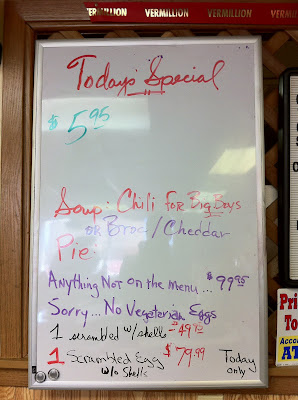 VERMILLION VERMILLION VERMILLION
Todays Special
$5.95
Soup: Chili For Big Boys
OR Broc/Cheddar
Pie:
Anything Not on the menu... $99.95
Sorry... No Vegetarian Eggs
1 scrambled w/shells -
1 Scrambled Egg $79.99 Today
w/o Shells only
Pri
To
AT